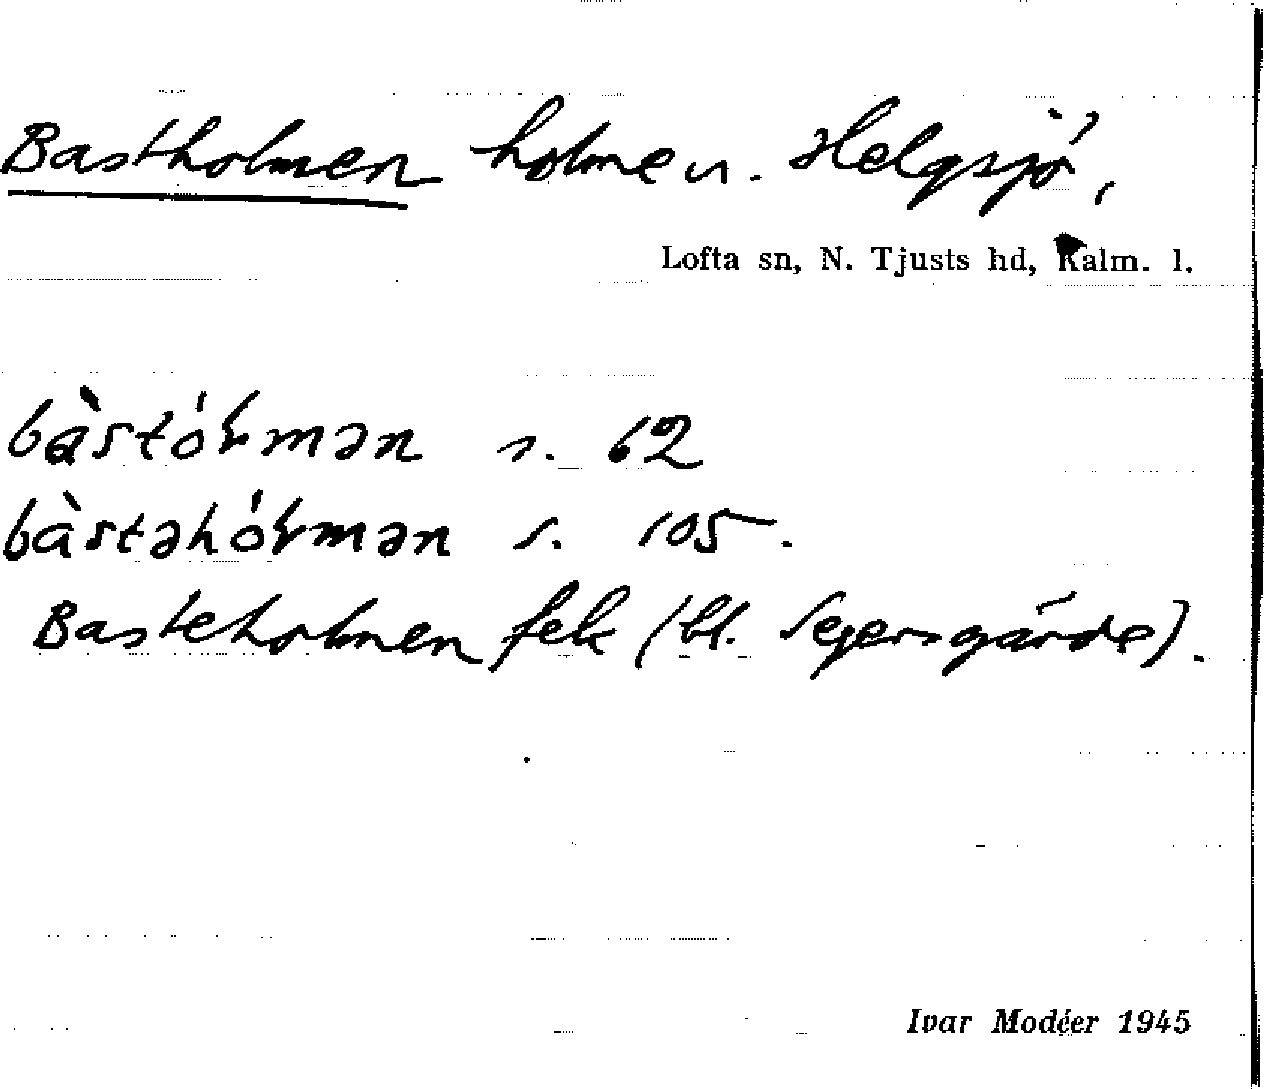 Bastholmen holme u. Helgsjö,
Lofta sn, N. Tjusts hd, Kalm. l.
bàstóɫmən s. 62
bàstəhóɫmən s. 105.
Basteholmen fek (bl. Segersgärde).
Ivar Modéer 1945